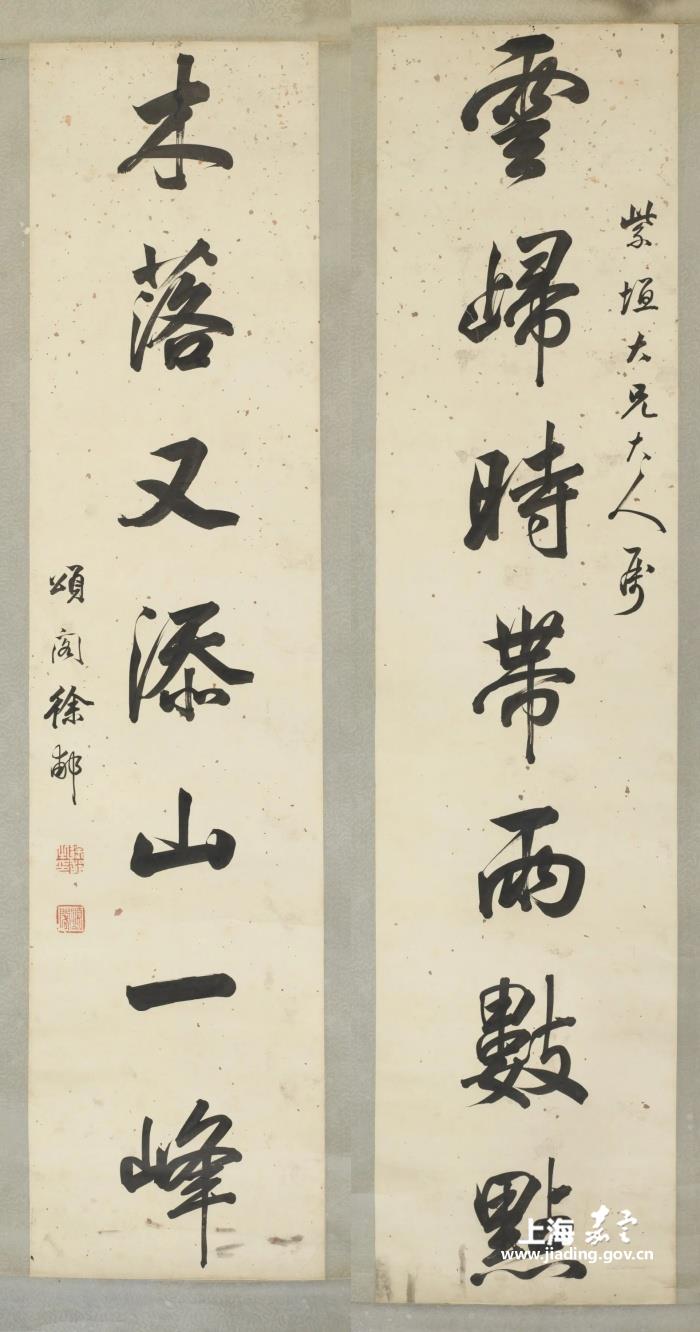 紫垣大兄大人属
雲歸時帶雨數點
木落又添山一峰
頌閣徐郙
上海嘉定
www.jiading.gov.cn